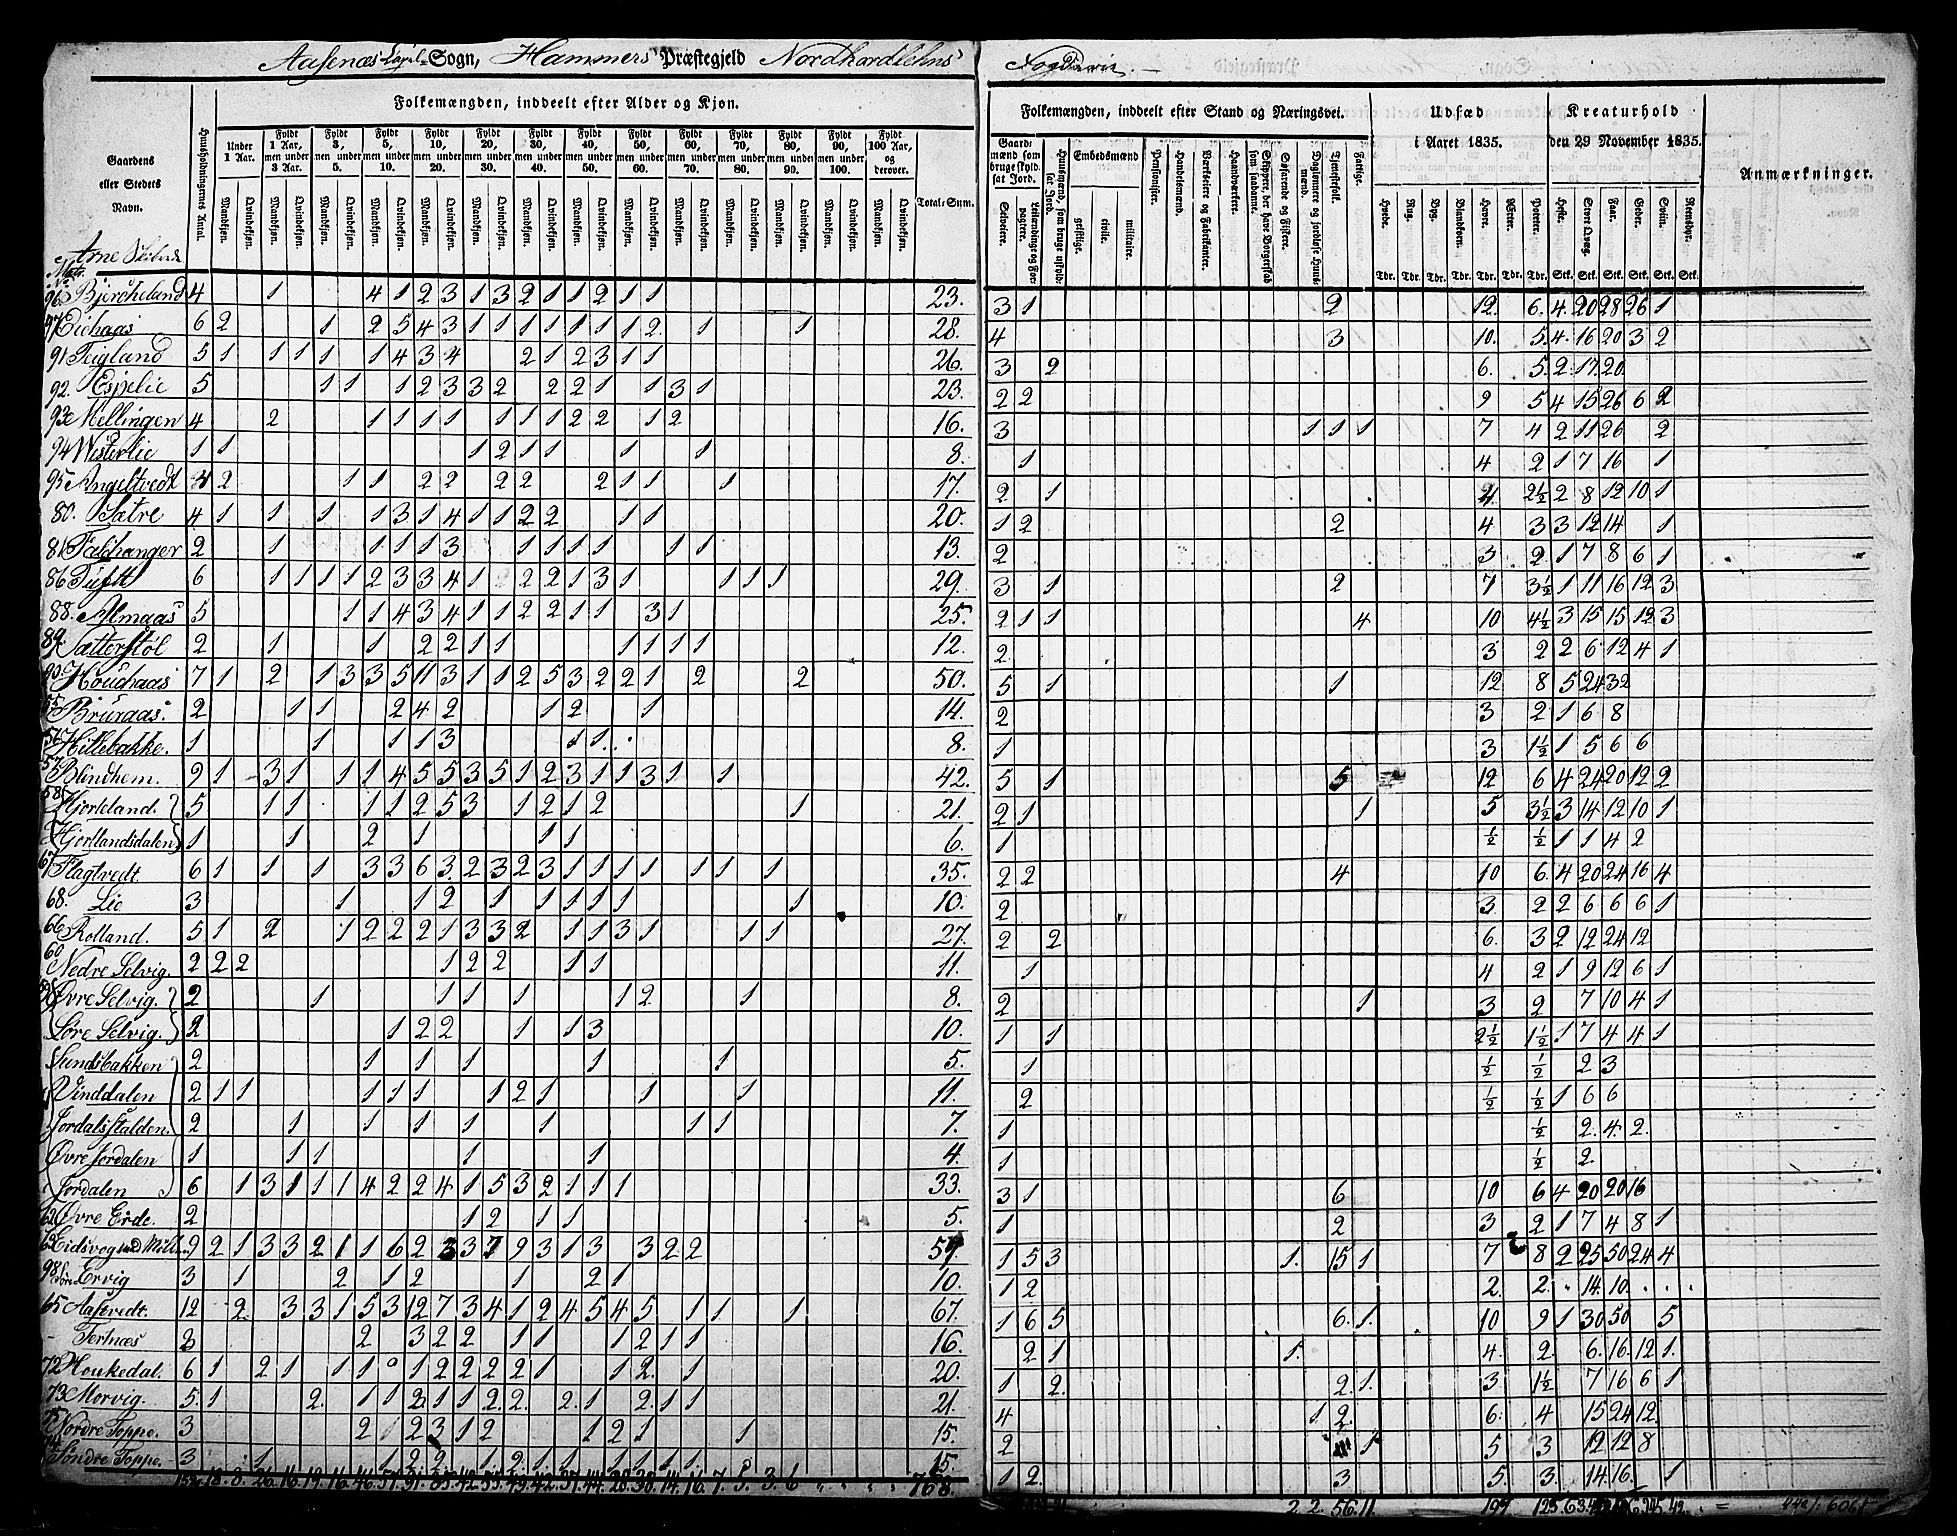 Aasenæs Capel Sogn, Hammers Præstegjeld Nordhordlehns Fogderie
Folkemængden, inddeelt efter Alder og Kjøn.
Gaardens eller Stedets Navn.
Huusholdningernes Antal.
Under 1 Aar.
Fyldt 1 Aar, men under 3 Aar.
Fyldt 3, men under 5.
Fyldt 5, men under 10.
Fyldt 10, men under 20.
Fyldt 20, men under 30.
Fyldt 30, men under 40.
Fyldt 40, men under 50.
Fyldt 50, men under 60.
Fyldt 60, men under 70.
Fyldt 70, men under 80.
Fyldt 80, men under 90.
Fyldt 90, men under 100.
Fyldt 100 Aar, og derover.
Mandkjøn. Qvindekjøn.
Total-Sum.
Folkemængden, inddeelt efter Stand og Næringsvei.
Gaardmænd som bruge skyldsat Jord.
Selveiere.
Leilændinge og Forpagtere.
Huusmænd, som bruge uskyldsat Jord.
Embedsmænd
geistlige. civile. militaire.
Pensionister.
Handelsmænd.
Værkseiere og Fabrikanter.
Haandværkere.
Skippere, der have Borgerskab som saadanne.
Søfarende og Fiskere.
Daglønnere og jordløse Huusmænd.
Tjenestefolk.
Fattige.
Udsæd i Aaret 1835.
Hvede. Rug. Byg. Blandkorn. Havre. Ærter. Poteter.
Tdr. Tdr. Tdr. Tdr. Tdr. Tdr. Tdr.
Kreaturhold den 29 November 1835.
Heste. Stort Qvæg. Faar. Geder. Sviin. Rensdyr.
Stk. Stk. Stk. Stk. Stk. Stk.
Anmærkninger.
Arne Skibrede
Matr. No
96 Bjercheland 4 1 4 1 2 3 1 3 2 1 1 2 1 1 23. 3 1 2 12. 6. 4. 20 28 26 1
97 Eichaas 6 2 1 2 5 4 3 1 1 1 1 1 1 1 2. 1 1 28. 4 3 10. 5. 4. 16 20 3 2
91 Teigland 5 1 1 1 1 1 4 3 4 2 1 2 3 1 1 26. 3 2 6. 5. 2. 17. 20.
92. Espelie 5 1 1 1 2 3 3 2 2 2 1 1 3 1 23. 2 2 9 5 4 15 26 6 2
93 Mellingen 4 2 1 1 1 1 1 1 1 2 2 1 2 16. 3 1 1 1 7 4 2 11 26 2
94 Westerlie 1 1 1 2 1 1 1 1 8. 1 4 2 1 7 16 1
95 Angeltvedt 4 2 1 1 2 2 2 2 2 1 1 1 17. 2 1 4. 2½ 2 8 12 10 1
80. Sætre 4 1 1 1 1 3 1 4 1 1 2 2 1 1 20. 1 2 2 4 3 3 12 14 1
81 Falchanger 2 1 1 1 1 3 1 1 1 1 1 1 13. 2 3 2 1 7 8 6 1
86 Tuft 6 1 1 1 1 2 3 3 4 1 2 2 1 3 1 1 1 1 29. 3 1 2 7 3½ 1 11 16 12 3
88. Almaas 5 1 1 4 3 4 1 1 2 2 1 1 3 1 25. 2 1 1 4 10 4½ 3 15 15 12 3
89. Sætterstøl 2 1 1 2 2 1 1 1 1 1 1 12. 2. 3 2 2 6 12 4 1
90. Houchaas 7 1 2 1 3 3 5 11 3 1 1 2 5 3 2 2 1 2 2 50. 5 1 1 12 8 5 24 32
55 Bruraas. 2 1 1 2 4 2 1 2 1 14. 2 3 2 1 6 8
56 Hittebakke. 1 1 1 1 3 1 1 8. 1 3 1½ 1 5 6 6
57 Blindhem. 9 1 3 1 1 1 4 5 5 3 5 1 2 3 1 1 3 1 1 42. 5 1 5 12 6 4 24 20 12 2
58 Hjorteland. 5 1 1 1 1 2 5 3 1 2 1 2 1 21. 2 1 1 5 3½ 3 14 12 10 1
Hjortlandsdalen 1 1 2 1 1 1 6. 1 ½ ½ 1 1 4 2
67 Flagtvedt. 6 1 1 1 3 3 6 3. 2 3 2 3 1 1 1 1 1 1 1 35. 2 2 4 10 6. 4 20 24 16 4
68. Lie 3 1 1 2 1 1 1 1 1 1 10. 2 3 2 2 6 6 6 1
66 Rolland. 5 1 2 1 2 2 2 1 3 3 2 1 1 3 1 1 1 27. 2 2 6. 3 2 12 24 12
60 Nedre Selvig. 2 2 2 1 2 2 1 1 11. 1 4 2 1 9 12 6 1
Øvre Selvig. 2 1 1 1 1 1 2 1 8. 2 1 3 2 7 10 4 1
Søre Selvig. 2 1 2 2 1 1 3 10. 1 1 2½ 1½ 1 7 4 4 1
Sundsbakken 2 1 1 1 1 1 5. 1 ½ ½ 2 3
Vinddalen 2 1 1 1 1 1 1 2 1 1 1 11. 2 ½ ½ 1 6 6
Jordalsstalden. 2 1 1 1 1 1 1 1 7. 1 ½ 2. 4. 2.
Øvre Jordalen 1 1 1 1 1 4. 1 ½ 2.
Jordalen 6 1 3 1 1 1 4 2 2 4 1 5 3 2 1 1 1 33. 3 1 6 10 6 4 20 20 16
62 Øvre Erde. 2 1 2 1 1 5. 1 2 3 2 1 7 4 8 1
Eidsvog med Møllen 9 2 1 3 3 2 1 1 6 2 3 3 7 9 3 1 3 3 2 2 57. 1 5 3 1. 15 1 7 8 2 25 50 24 4
98 Søre Ervig 3 1 2 1 2 1 2 1 10. 1 2 2. 2. 14. 10.
65 Aastvedt. 12 2. 3 3 1 5 3 12 7 3 4 1 2 4 5 4 5 1 1 1 67. 1 6 5 6. 1. 10 9 1 30 50 5
Tertnæs 3 2 3 2 2 1 1 1 2 1 1 16. 2 1 1. 4. 2. 6. 16. 12 1.
72 Houkedal. 6 1 2 1 1 1 1 2 2 2 2 1 1 2. 1 20. 1 2. 2. 1. 3. 1½ 7 16 6 1
73 Morvig. 5. 1 2. 1 1 2 1 1 2. 2. 2. 1 2. 1 1 21. 4 1 2. 6. 4 15 24 12.
Nordre Toppe. 3 2 2 3 1 2 1 2 1 1 15. 2 1 5 3 12 12 8
Søndre Toppe. 3 1 1 2 2 1. 2. 1 1 1 1 1 1. 15. 1 2. 3 5. 3. 14. 16. 1
18. 8. 26. 16. 19. 16. 46. 42. 55. 49. 42. 37. 44. 28. 38. 14. 16. 7. 5. 3. 6 768.
2. 2. 56. 11. 197 125. 63.